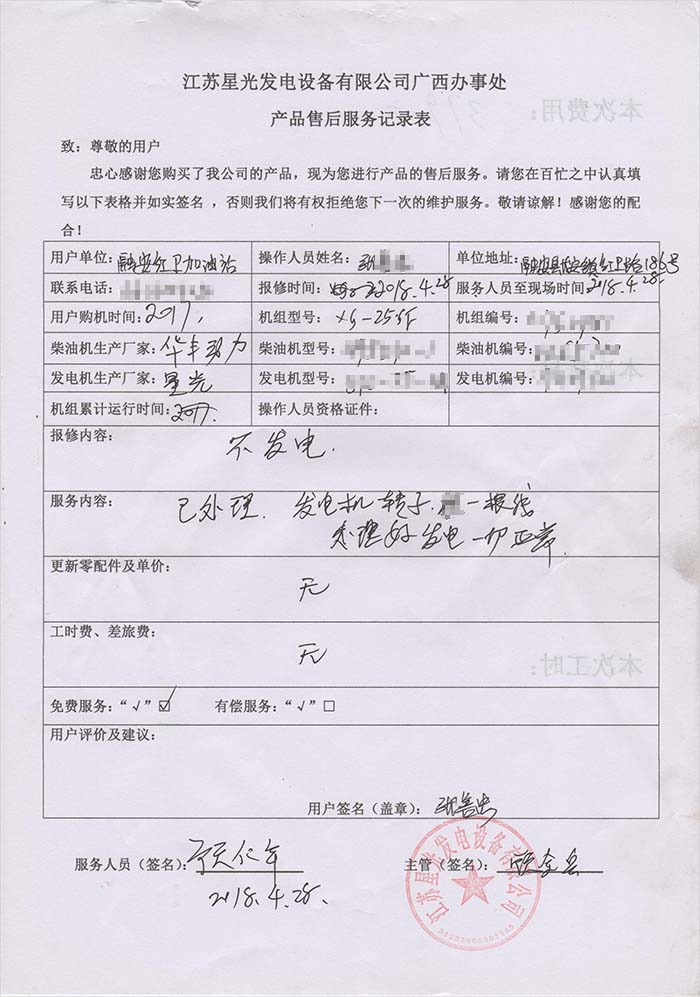 江苏星光发电设备有限公司广西办事处
产品售后服务记录表
本次费用：
致：尊敬的用户
忠心感谢您购买了我公司的产品，现为您进行产品的售后服务。请您在百忙之中认真填
写以下表格并如实签名，否则我们将有权拒绝您下一次的维护服务。敬请谅解！感谢您的配
合！
用户单位：融安红卫加油站 操作人员姓名： 单位地址：融安县长安镇红卫路186号
联系电话： 报修时间：2018.4.28 服务人员至现场时间2018.4.28.
用户购机时间：2017. 机组型号：XG-25GF 机组编号：
柴油机生产厂家：华丰动力 柴油机型号： 柴油机编号：
发电机生产厂家：星光 发电机型号： 发电机编号：
机组累计运行时间：2017. 操作人员资格证件：
报修内容：
不发电.
服务内容：已处理. 发电机转子 一根线
处理好发电一切正常.
更新零配件及单价：
无
工时费、差旅费：
无
本次工时：
免费服务：“√”☑ 有偿服务：“√”□
用户评价及建议：
用户签名（盖章）：
服务人员（签名）： 主管（签名）：
2018.4.28.
江苏星光发电设备有限公司